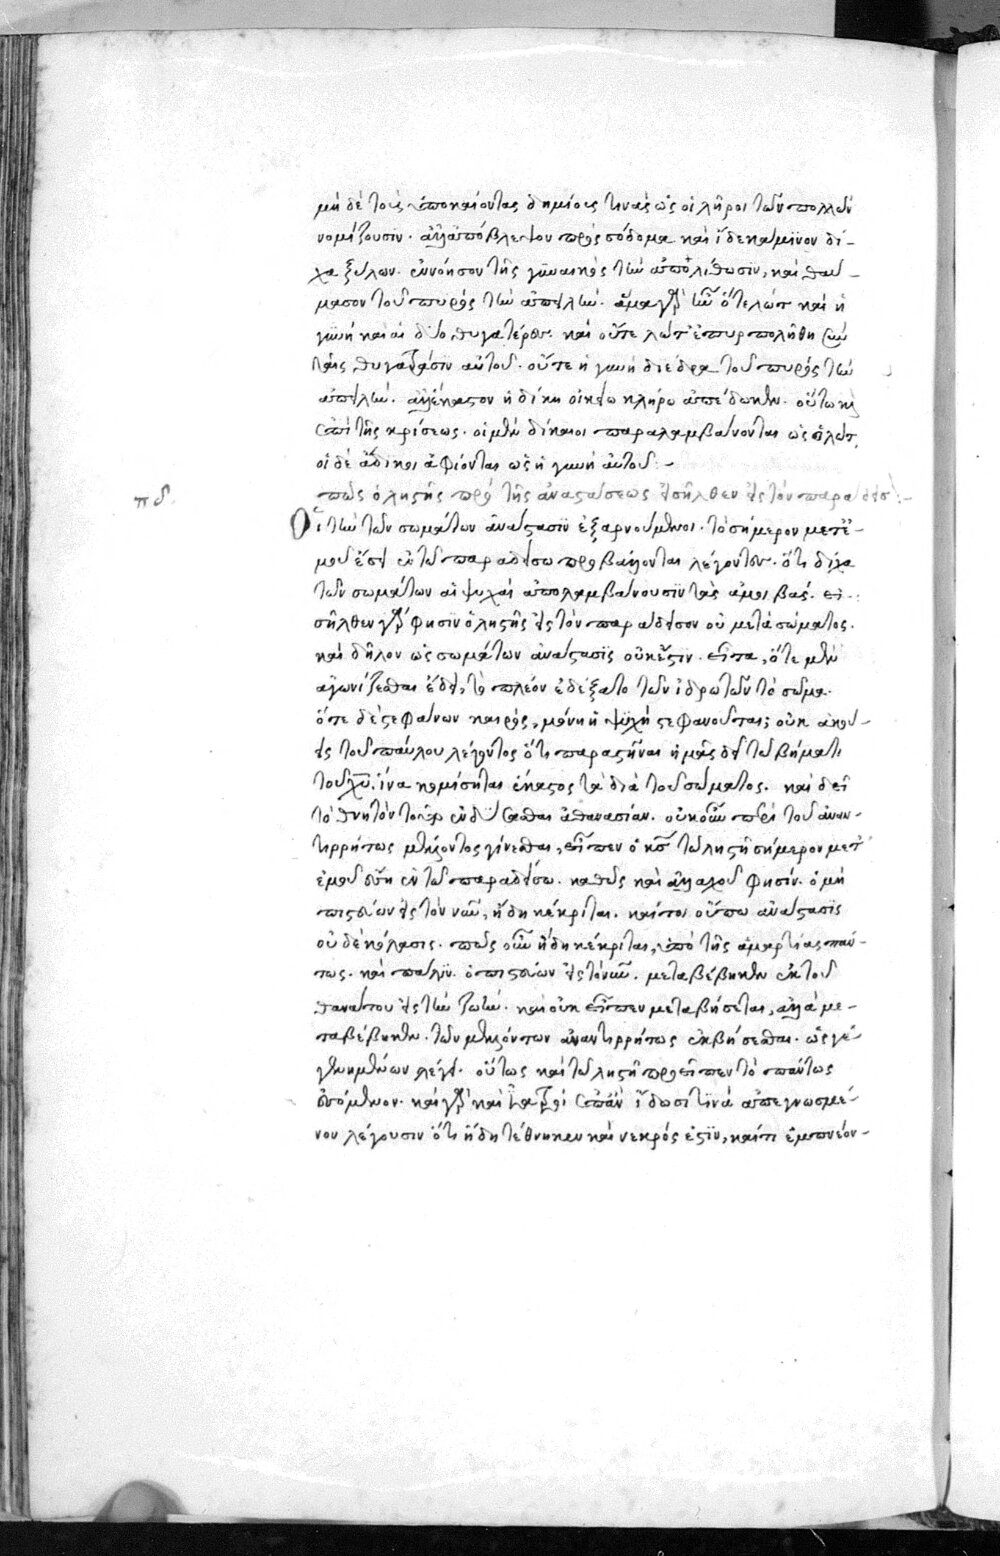 μὴ δὲ τοὺς ὑποκαίοντας δημίους τινὰς ὡς οἱ λῆροι τῶν πολλῶν
νομίζουσϊν. ἀλλ' ἀπόβλεψον πρὸς σόδομα καὶ ἴδε κάμϊνον δί-
χα ξύλων. ἐννόησον τῆς γυναικὸς τὴν ἀπολίθωσϊν, καὶ θαύ-
μασον τοῦ πυρὸς τὴν ἀπειλήν. ἅμα γὰρ ἦν ὅτε λὼτ καὶ ἡ
γυνὴ καὶ αἱ δύο θυγατέρες. καὶ οὔτε λὼτ ἐπυρπολήθη σὺν
ταῖς θυγατράσϊν αὐτοῦ. οὔτε ἡ γυνὴ διέδρα τοῦ πυρὸς τὴν
ἀπειλήν. ἀλλ' ἕκαστον ἡ δίκη οἰκείω κλήρω ἀπέδωκεν. οὕτω καὶ
ἐπὶ τῆς κρίσεως. οἱ μὲν δίκαιοι παραλαμβάνονται ὡς ὁ λὼτ,
οἱ δὲ ἄδικοι ἀφίονται ὡς ἡ γυνὴ αὐτοῦ:-
πδ. πῶς ὁ ληστὴς πρὸ τῆς ἀναστάσεως εἰσῆλθεν εἰς τὸν παράδεισον:-
Οἱ τὴν τῶν σωμάτων ἀνάστασϊν ἐξαρνούμενοι. τὸ σήμερον μετ' ἐ-
μοῦ ἔση ἐν τῶ παραδείσω προβάλλονται λέγοντες. ὅτι δίχα
τῶν σωμάτων αἱ ψυχαὶ ἀπολαμβάνουσϊν τὰς ἀμοιβάς. εἰ-
σῆλθεν γάρ φησϊν ὁ ληστὴς εἰς τὸν παράδεισον οὐ μετὰ σώματος.
καὶ δῆλον ὡς σωμάτων ἀνάστασϊς οὐκ ἔστϊν. εἶτα, ὅτε μὲν
ἀγωνίζεσθαι ἔδει, τὸ πλέον ἐδέξατο τῶν ἱδρώτων τὸ σῶμα.
ὅτε δὲ στεφάνων καιρὸς, μόνη ἡ ψυχὴ στεφανοῦται; οὐκ ἀκού-
εις τοῦ παύλου λέγοντος ὅτι παραστῆναι ἡμᾶς δεῖ τῶ βήματι
τοῦ χῡ. ἵνα κομίσηται ἕκαστος τὰ διὰ τοῦ σώματος. καὶ δεῖ
τὸ θνητὸν τοῦτο ἐνδύσασθαι ἀθανασίαν. οὐκοῦν περὶ τοῦ ἀναν-
τιρρήτως μέλλοντος γίνεσθαι, εἶπεν ὁ κς̄ τῶ ληστῆ σήμερον μετ'
ἐμοῦ ἔση ἐν τῶ παραδείσω. καθὼς καὶ ἀλλαχοῦ φησίν. ὁ μὴ
πιστεύων εἰς τὸν υἱὸν, ἤδη κέκριται. καίτοι οὔπω ἀνάστασϊς
οὐδὲ κόλασις. πῶς οὖν ἤδη κέκριται, ὑπὸ τῆς ἁμαρτίας πάν-
τως. καὶ πάλϊν. ὁ πιστεύων εἰς τὸν υἱὸν. μεταβέβηκεν ἐκ τοῦ
θανάτου εἰς τὴν ζωήν. καὶ οὐκ εἶπεν μεταβήσεται, ἀλλὰ με-
ταβέβηκεν. τῶν μελλόντων ἀναντιρρήτως ἐκβήσεσθαι. ὡς γε-
γενημένων λέγει. οὕτως καὶ τῶ ληστῆ προεῖπεν τὸ πάντως
ἐσόμενον. καὶ γὰρ καὶ ἰατροὶ ἐπὰν ἴδωσί τϊνὰ ἀπεγνωσμέ-
νον λέγουσιν ὅτι ἤδη τέθνηκεν καὶ νεκρός ἐστϊν, καίτοι ἐμπνέον-